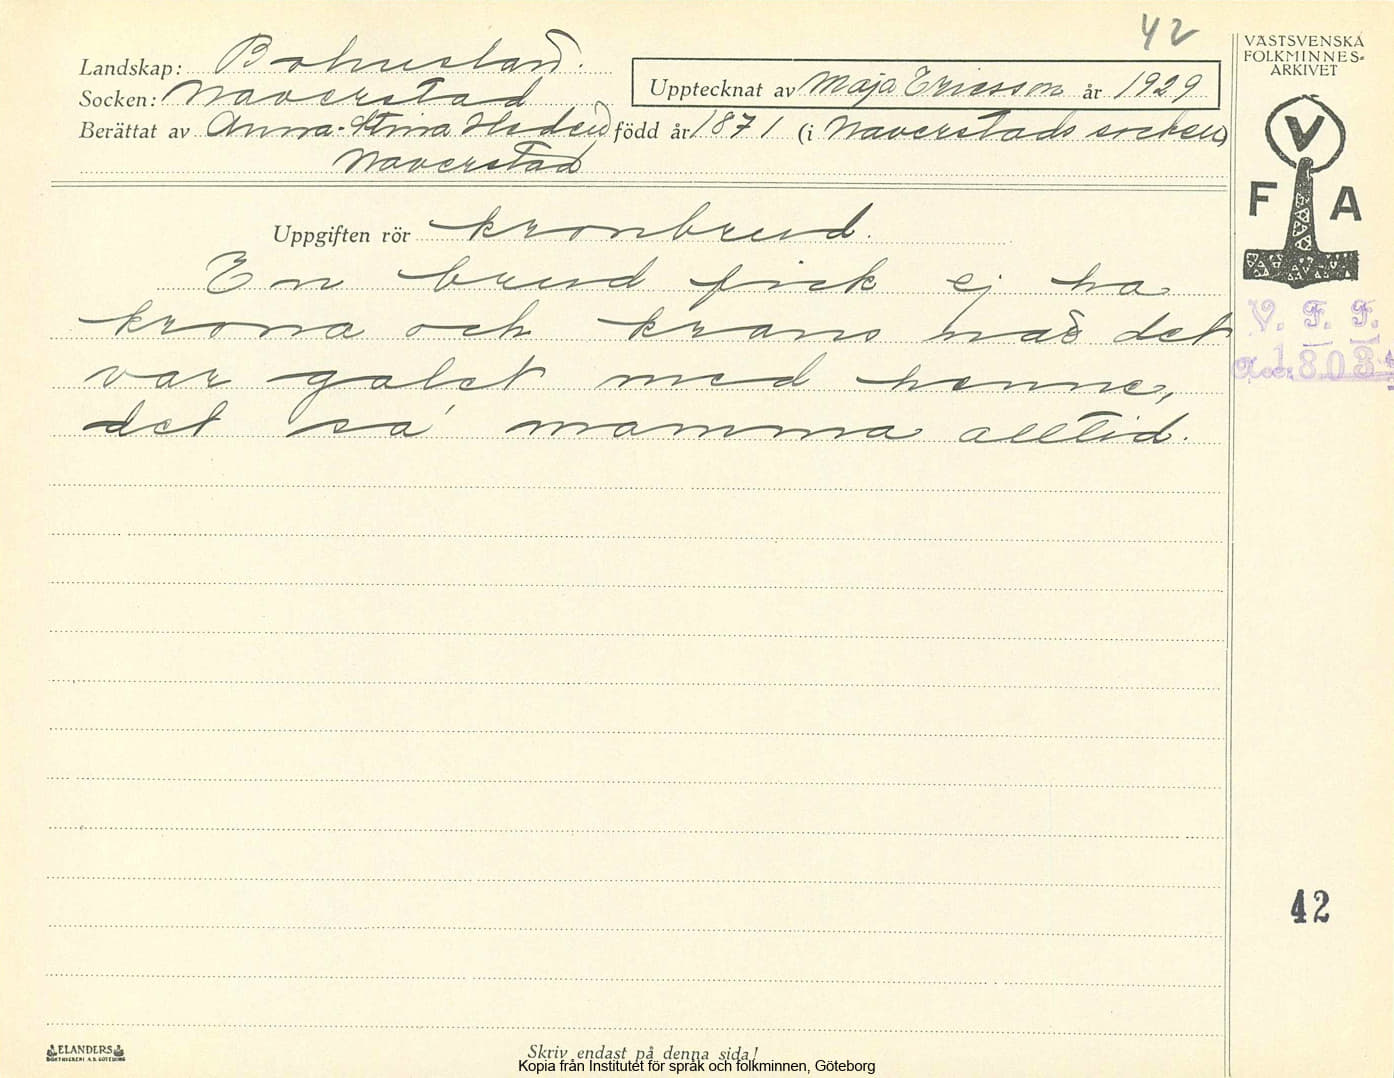 42
VÄSTSVENSKA
FOLKMINNES-
ARKIVET
Landskap: Bohuslän.
Socken: Naverstad
Upptecknat av Maja Ericsson år 1929
Berättat av Anna-Stina född år 1871 (i Naverstads socken)
Naverstad
V
F A
Uppgiften rör kronbrud.
En brud fick ej ha
krona och krans när det
var galet med henne,
det sa mamma alltid.
V. F. F.
Acc. 1803
42
ELANDERS
BOKTRYCKERI A.B. GÖTEBORG
Skriv endast på denna sida!
Kopia från Institutet för språk och folkminnen, Göteborg